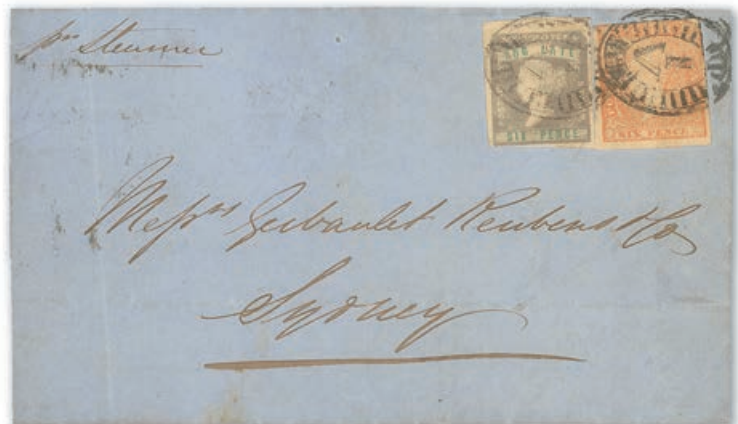 per Steamer
TOO LATE
SIX PENCE
SIX PENCE
Messrs Guibault Reubens & Co
Sydney